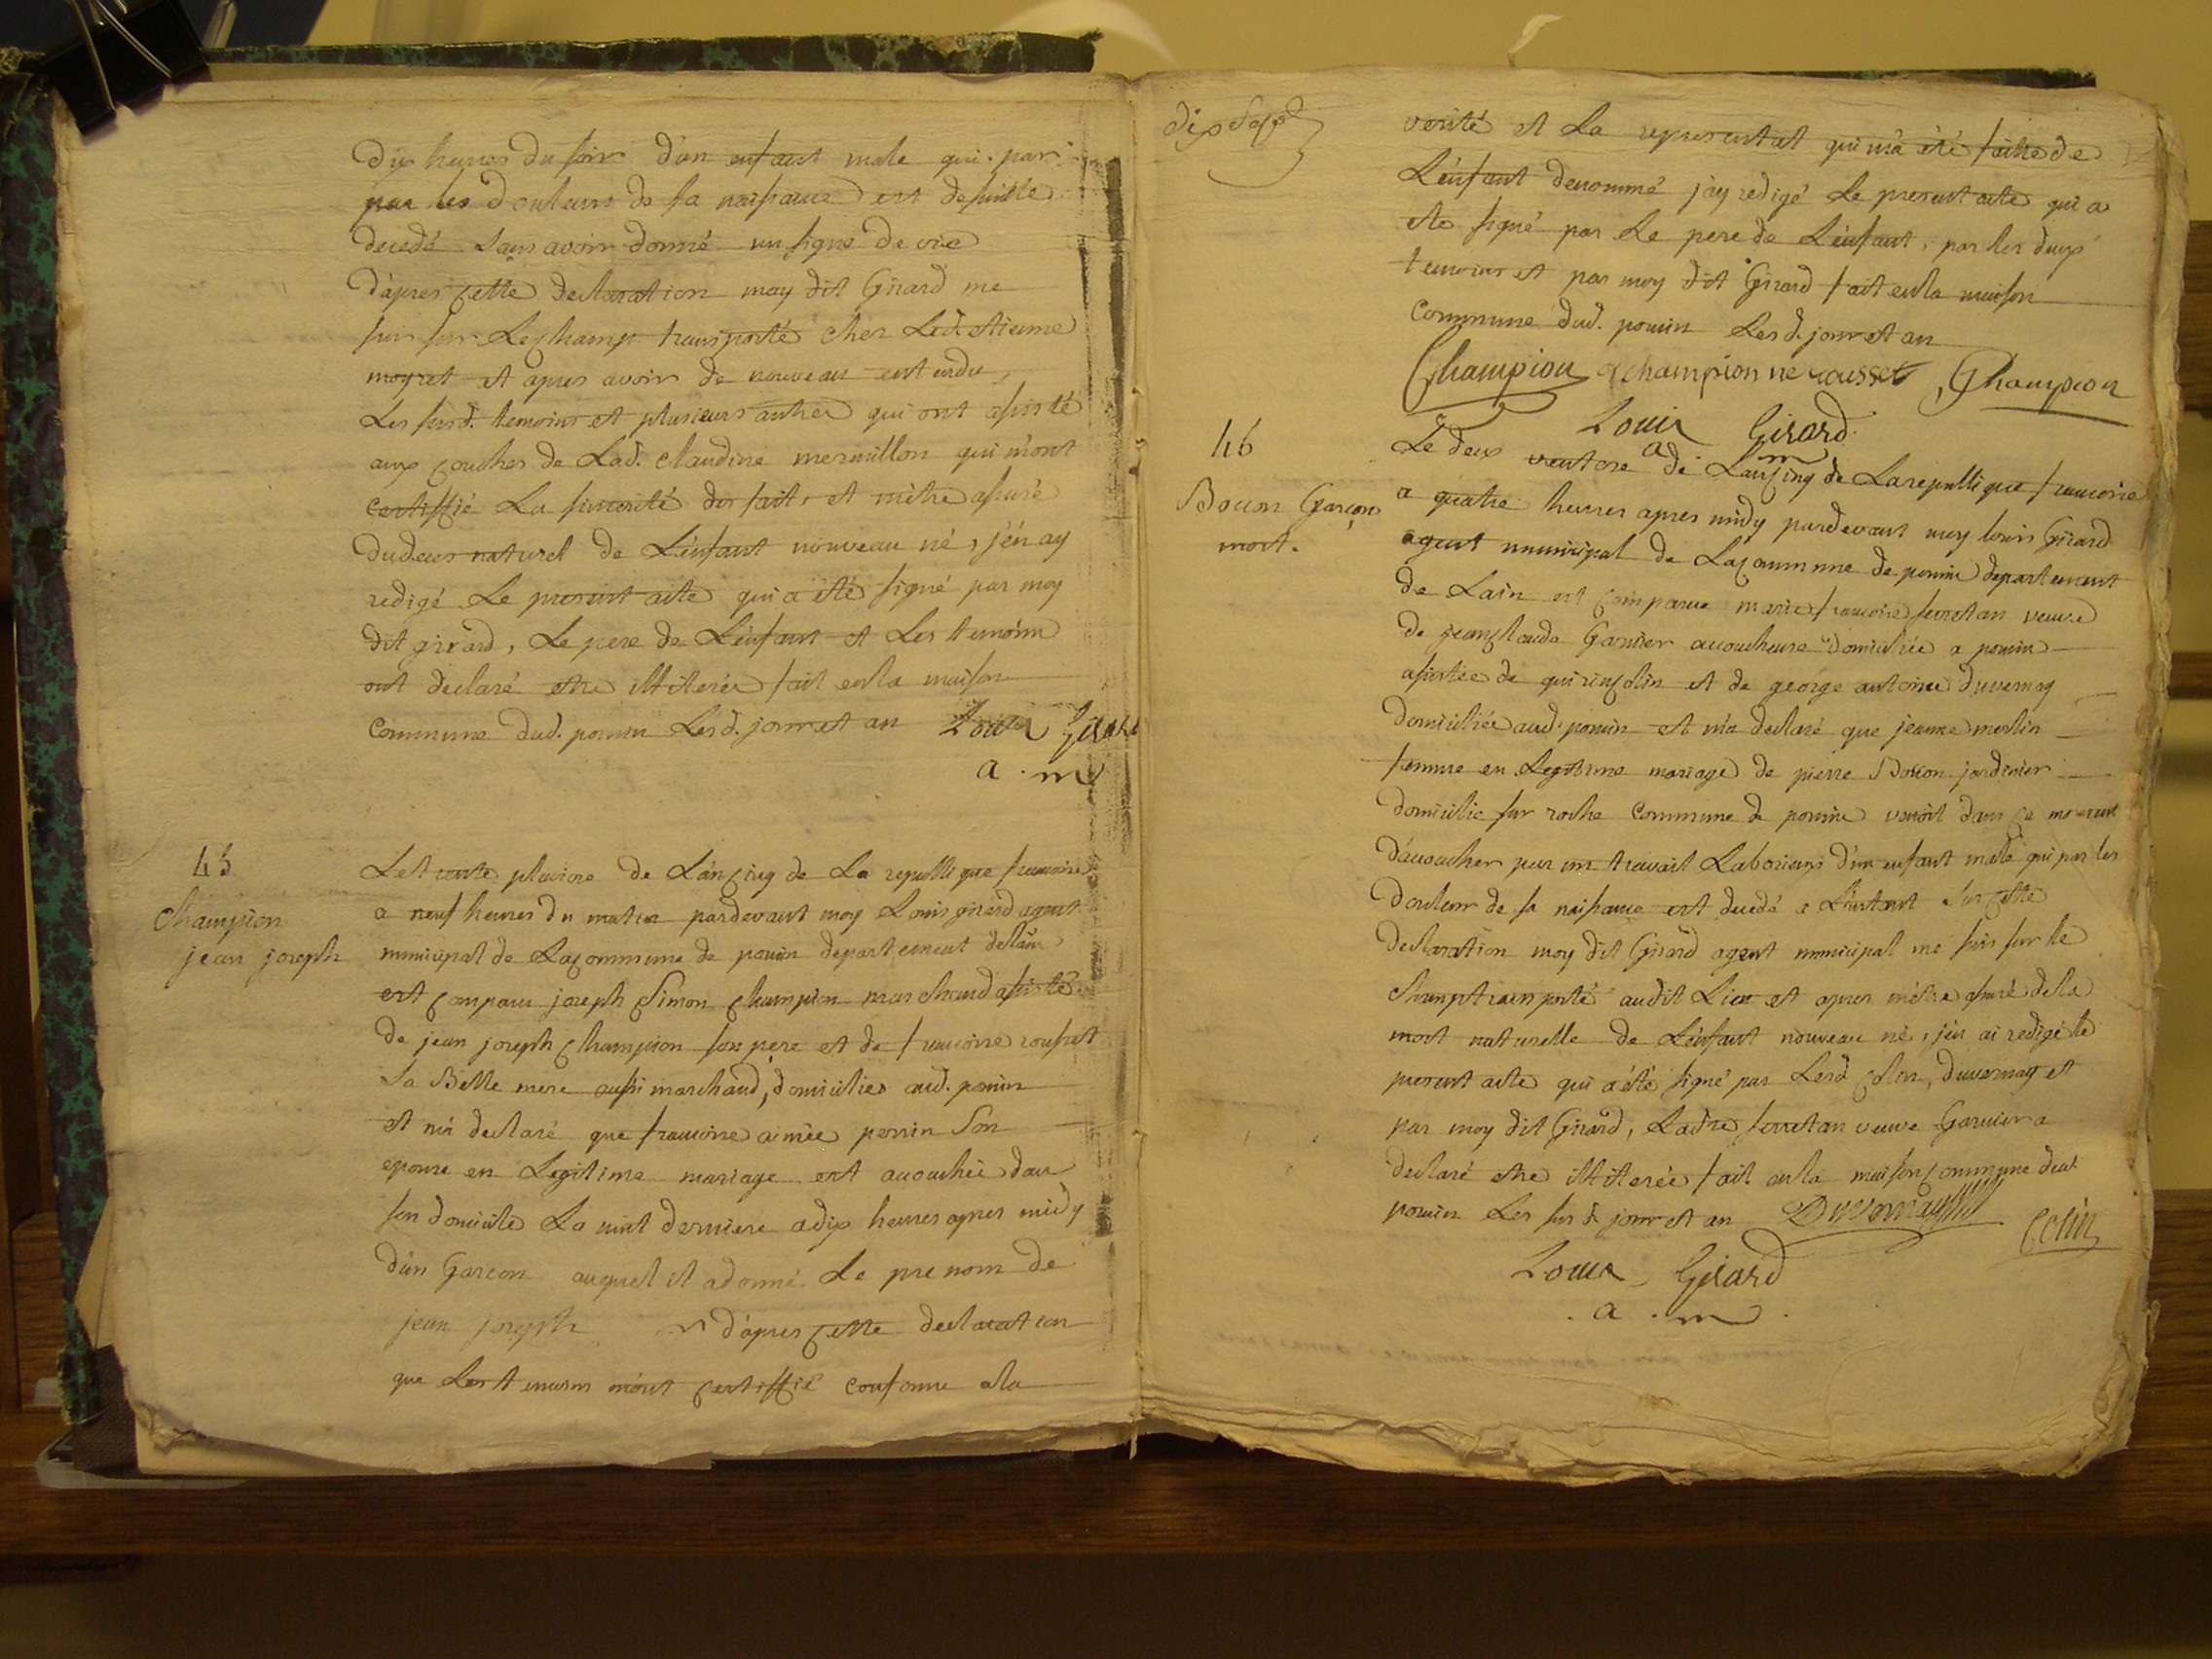 dix heures du soir d'un enfant male qui par
par les douleurs de sa naissance est de suitte
decedé sans avoir donné un signe de vie
d'apres cette declaration moy dit Girard me
suis sur Le champ transporté chez Led. etienne
moyret et apres avoir de nouveau entendu
Les susd. temoins et plusieurs autres qui ont assisté
aux couches de Lad. claudine mermillon qui m'ont
certiffié La sincerité des faits et m'etre assuré
du deces naturel de L'enfant nouveau né, j'en ay
redigé Le present acte qui a été signé par moy
dit girard, Le pere de L'enfant et Les temoins
ont declaré etre illiterée fait en la maison
commune dud. poncin Lesd. jour et an Louis Girard
a. m
45
champion
jean joseph
Le trente pluviose de L'an cinq de La republique francoise
a neuf heures du matin pardevant moy Louis girard agent
municipal de La commune de poncin departement de lain
est comparu joseph Simon champion marchand assisté
de jean joseph champion son pere et de francoise rousset
sa Belle mere aussi marchand, domicilies aud. poncin
et m'a declaré que francoise aimée perrin Son
epouse en Legitime mariage est accouchée dans
son domicile La nuit derniere a dix heures apres midy
d'un Garcon auquel il a donné Le prenom de
jean joseph d'apres cette declaration
que Les temoins m'ont certiffié conforme a la
dix Sept
verité et La representat qui m'a été faitte de
L'enfant denommé j'ay redigé Le present acte qui a
ete signé par Le pere de L'enfant, par les deux
temoins et par moy dit Girard fait en la maison
commune dud. poncin Lesd. jour et an
Champion champion ne rousset Champion
Louis Girard
a m
46
Bocon Garçon
mort.
Le deux ventose de L'an cinq de La republique francoise
a quatre heures apres midy pardevant moy louis Girard
agent municipal de La commune de poncin departement
de Lain est comparue marie francoise ferretan veuve
de jean claude Garnier accoucheuse domiciliée a poncin
assistée de quirin colin et de george antoine duvernay
domiciliée aud. poncin et m'a declaré que jeanne merlin
femme en Legitime mariage de pierre Bocon jardinier
domicilie sur roche commune de poncin venoit dans ce moment
d'accoucher par un travail Laborieux d'un enfant malle qui par les
douleur de sa naissance est decedé a L'instant sur cette
declaration moy dit Girard agent municipal me suis sur le
champ transporté audit Lieu et apres m'etre assuré de la
mort naturelle de L'enfant nouveau né, j'en ai redigé le
present acte qui a été signé par Lesd. colin, duvernay et
par moy dit Girard, Ladte ferretan veuve Garnier a
declaré etre illiterée fait en la maison commune dud.
poncin Les sus d. jour et an Duvernay Colin
Louis Girard
. a . m .